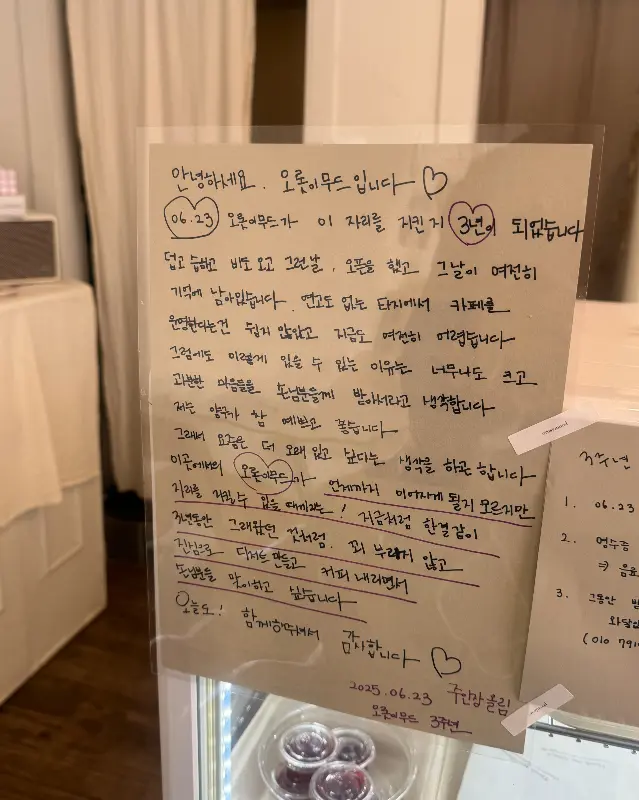 안녕하세요. 오롯이무드입니다 ♡
06.23 오롯이무드가 이 자리를 지킨지 3년이 되었습니다
덥고 습하고 비도 오고 그런날, 오픈을 했고 그날이 여전히
기억에 남아있습니다. 연고도 없는 타지에서 카페를
운영한다는건 쉽지 않았고 지금도 여전히 어렵습니다
그럼에도 이렇게 있을 수 있는 이유는 너무나도 크고
과분한 마음들을 손님분들께 받아서라고 생각합니다
저는 양주가 참 예쁘고 좋습니다
그래서 요즘은 더 오래 있고 싶다는 생각을 하곤합니다
이곳에서의 오롯이무드가 언제까지 이어지게 될지 모르지만
자리를 지킬수 있을 때까지는! 지금처럼 한결같이
3년동안 그래왔던 것처럼, 꾀 부리지 않고
진심으로 디저트 만들고 커피 내리면서
손님분들을 맞이하고 싶습니다
오늘도! 함께해주셔서 감사합니다 ♡
2025.06.23 주인장 올림
오롯이무드 3주년
3주년
1. 06.23
2. 영수증
⇒ 음료
3. 그동안
(010